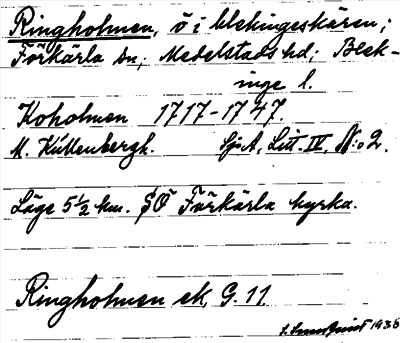 Ringholmen, ö i blekingeskären;
Förkärla sn; Medelstads hd; Blek-
inge l.
Koholmen 1717-1747.
M. Küllenbergh. Sjö A, Litt. IV, N:o 2.
Läge 5½ km. SÖ Förkärla kyrka.
Ringholmen ek, G. 11
1938